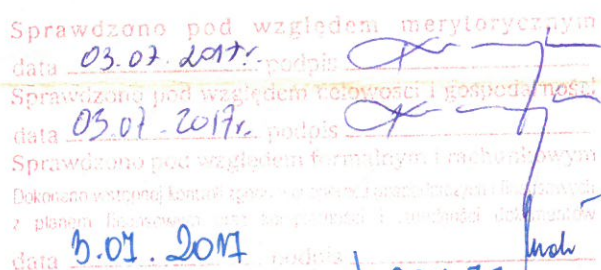 Sprawdzono pod względem merytorycznym
data 03.07.2017r. podpis
Sprawdzono pod względem celowości i gospodarności
data 03.07.2017r. podpis
Sprawdzono pod względem formalnym i rachunkowym
Dokonano wstępnej kontroli
z planem finansowym oraz kompletności i rzetelności dokumentów
data 3.07.2017 podpis